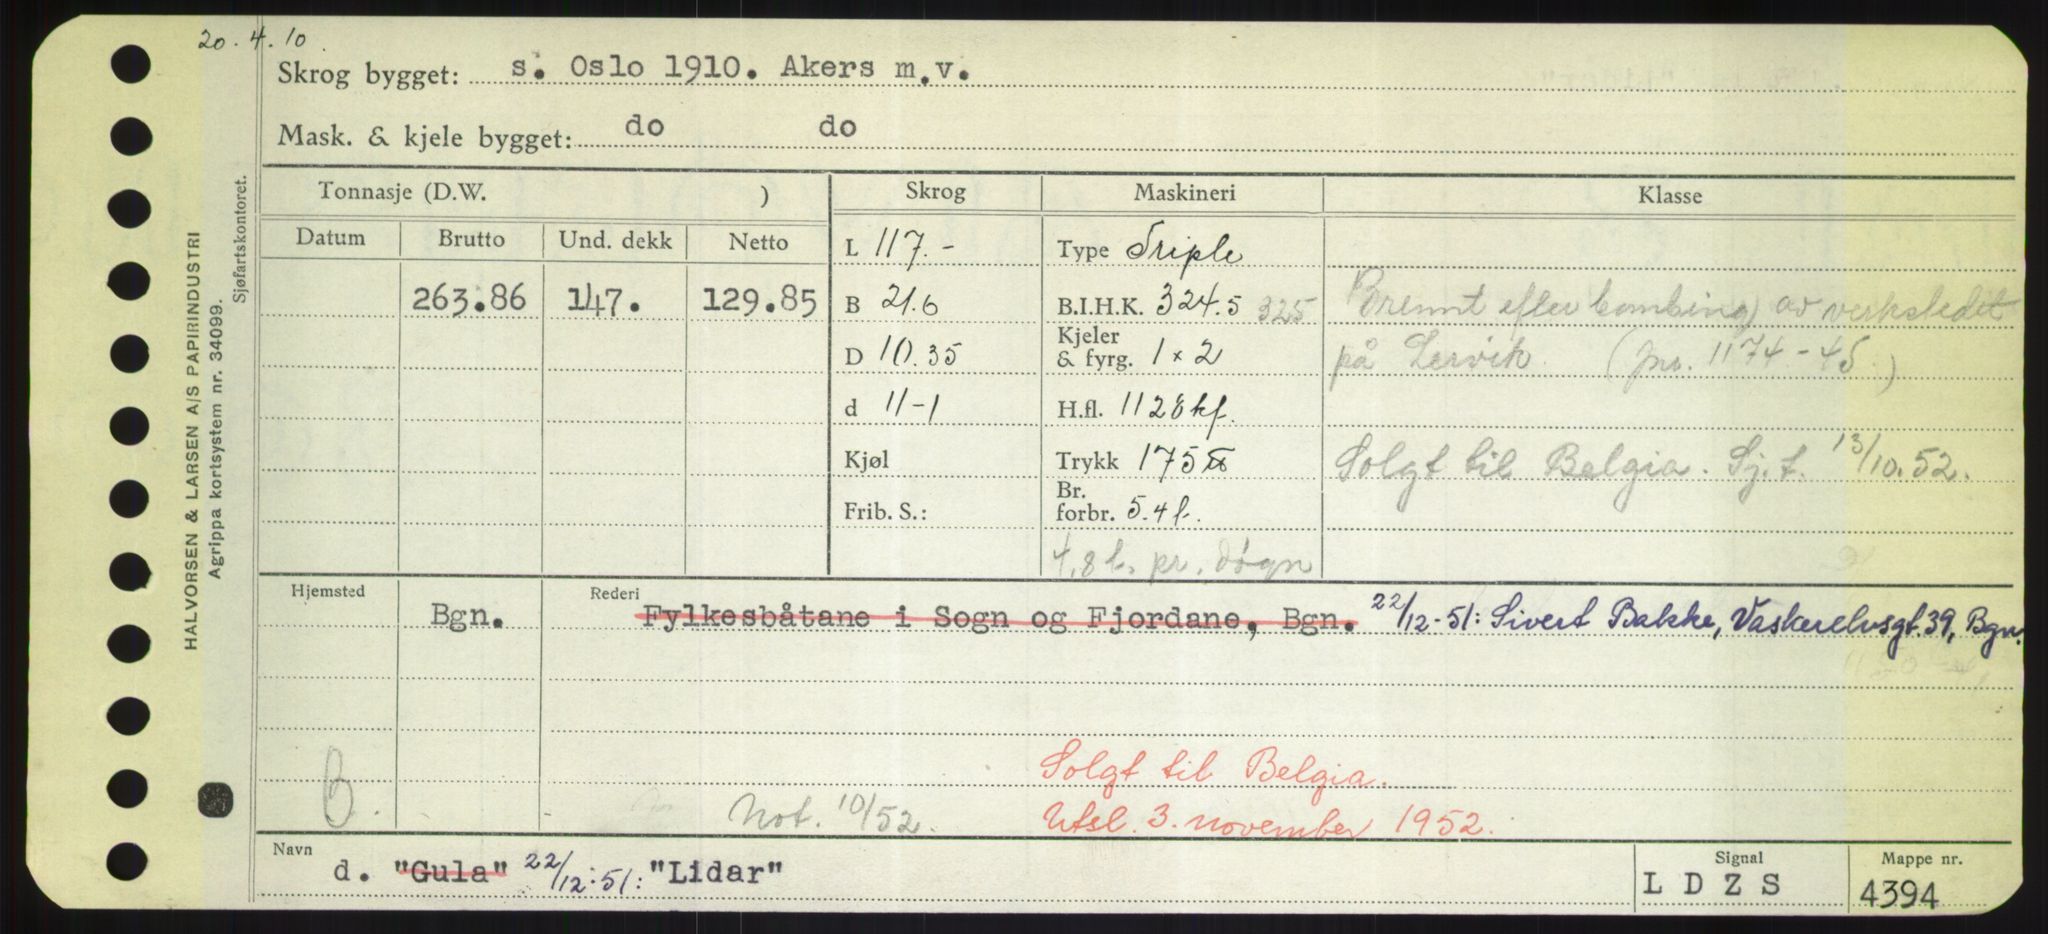 20.4.10.
Skrog bygget: s. Oslo 1910. Akers m.v.
Mask. & kjele bygget: do do
HALVORSEN & LARSEN A/S PAPIRINDUSTRI
Agrippa kortsystem nr. 34099.
Sjøfartskontoret.
Tonnasje (D.W. ) Skrog Maskineri Klasse
Datum Brutto Und. dekk Netto L 117.- Type Triple
263.86 147. 129.85 B 21.6 B.I.H.K. 324.5 325 Brennt efter bombing av verkstedet
D 10.35 Kjeler & fyrg. 1 x 2 på Lervik. (jnr. 1174-45.)
d 11-1 H.fl. 1128 kf.
Kjøl Trykk 175 lbs Solgt til Belgia. Sj.t. 13/10.52.
Frib. S.: Br. forbr. 5.4 t.
4,8 t. pr. døgn
Hjemsted Bgn. Rederi Fylkesbåtane i Sogn og Fjordane, Bgn. 22/12-51: Sivert Bakke, Vaskerelvsgt. 39, Bgn.
Solgt til Belgia.
B. Not. 10/52. Utsl. 3. november 1952.
Navn d. "Gula" 22/12-51: "Lidar" Signal LDZS Mappe nr. 4394